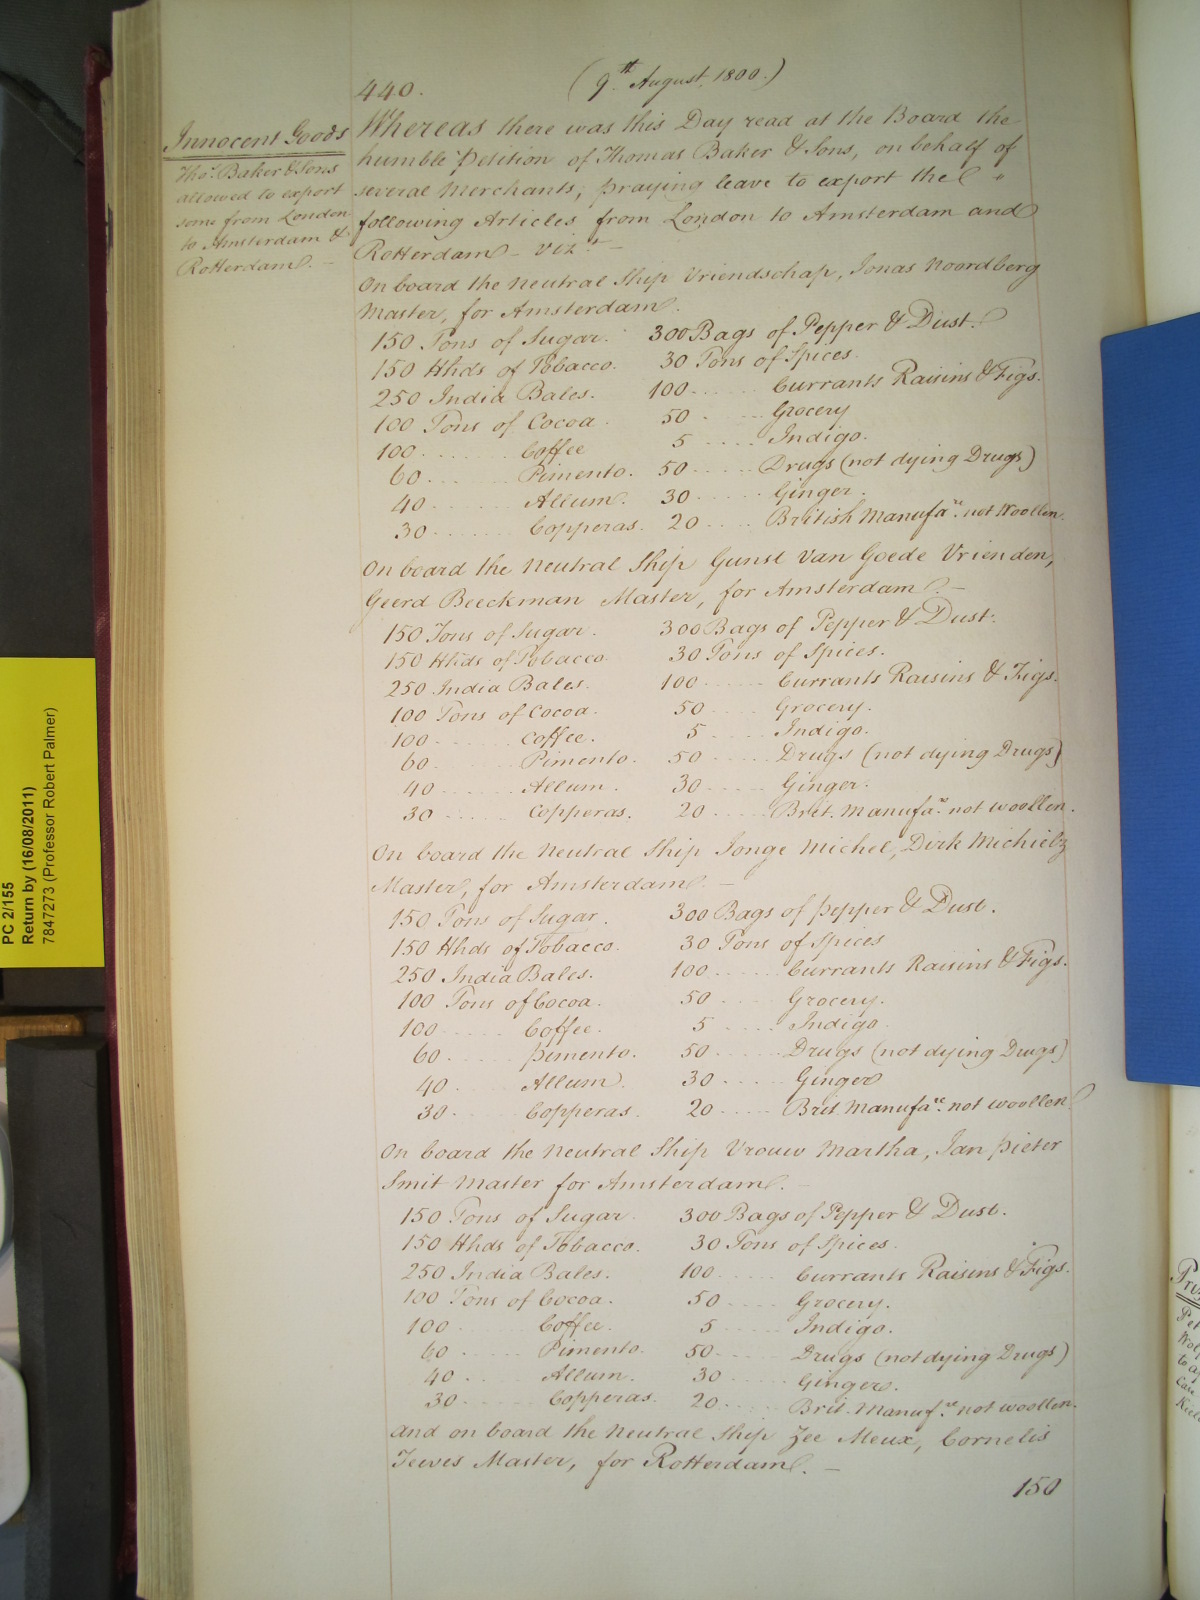 440.
(9th August, 1800.)
Innocent Goods
Thos. Baker & Sons
allowed to export
some from London
to Amsterdam &
Rotterdam. —
Whereas there was this Day read at the Board the
humble Petition of Thomas Baker & Sons, on behalf of
several Merchants, praying leave to export the "
following Articles from London to Amsterdam and
Rotterdam — vizt —
On board the Neutral Ship Vriendschap, Jonas Noordberg
Master, for Amsterdam.
150 Tons of Sugar. 300 Bags of Pepper & Dust.
150 Hhds of Tobacco. 30 Tons of Spices.
250 India Bales. 100 ..... Currants Raisins & Figs.
100 Tons of Cocoa. 50 ..... Grocery
100 ..... Coffee 5 ..... Indigo.
60 ..... Pimento. 50 ..... Drugs (not dying Drugs)
40 ..... Allum. 30 ..... Ginger.
30 ..... Copperas. 20 ..... British Manufare. not Woollen.
On board the Neutral Ship Gunst van Goede Vrienden,
Geerd Beeckman Master, for Amsterdam. —
150 Tons of Sugar. 300 Bags of Pepper & Dust.
150 Hhds of Tobacco. 30 Tons of Spices.
250 India Bales. 100 ..... Currants Raisins & Figs.
100 Tons of Cocoa. 50 ..... Grocery.
100 ..... Coffee. 5 ..... Indigo.
60 ..... Pimento. 50 ..... Drugs (not dying Drugs)
40 ..... Allum. 30 ..... Ginger.
30 ..... Copperas. 20 ..... Brit. Manufare. not woollen.
On board the Neutral Ship Jonge Michel, Dirk Michielz
Master, for Amsterdam. —
150 Tons of Sugar. 300 Bags of Pepper & Dust.
150 Hhds of Tobacco. 30 Tons of Spices
250 India Bales. 100 ..... Currants Raisins & Figs.
100 Tons of Cocoa. 50 ..... Grocery.
100 ..... Coffee. 5 ..... Indigo
60 ..... Pimento. 50 ..... Drugs (not dying Drugs)
40 ..... Allum. 30 ..... Ginger
30 ..... Copperas. 20 ..... Brit Manufare. not woollen.
On board the Neutral Ship Vrouw Martha, Jan Pieter
Smit Master for Amsterdam. —
150 Tons of Sugar. 300 Bags of Pepper & Dust.
150 Hhds of Tobacco. 30 Tons of Spices.
250 India Bales. 100 ..... Currants Raisins & Figs.
100 Tons of Cocoa. 50 ..... Grocery.
100 ..... Coffee. 5 ..... Indigo.
60 ..... Pimento. 50 ..... Drugs (not dying Drugs)
40 ..... Allum. 30 ..... Ginger.
30 ..... Copperas. 20 ..... Brit. Manufre. not woollen.
And on board the Neutral Ship Zee Meux, Cornelis
Teeves Master, for Rotterdam. —
150
PC 2/155
Return by (16/08/2011)
7847273 (Professor Robert Palmer)